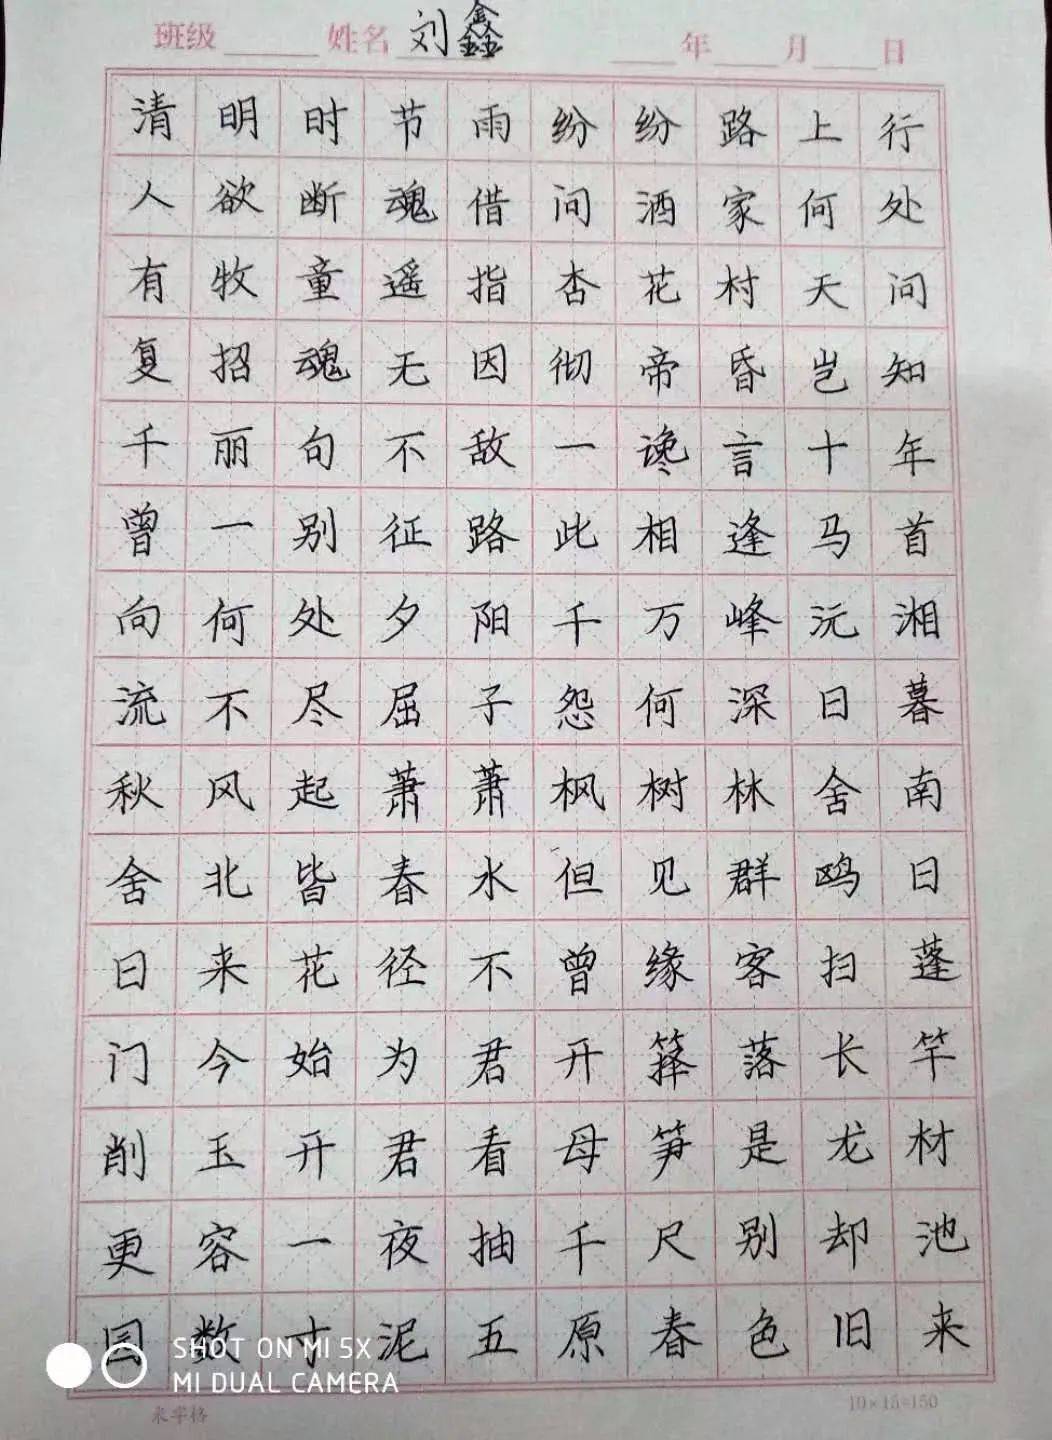 班级 姓名 刘鑫 年 月 日
清明时节雨纷纷路上行
人欲断魂借问酒家何处
有牧童遥指杏花村天问
复招魂无因彻帝昏岂知
千丽句不敌一谗言十年
曾一别征路此相逢马首
向何处夕阳千万峰沅湘
流不尽屈子怨何深日暮
秋风起萧萧枫树林舍南
舍北皆春水但见群鸥日
日来花径不曾缘客扫蓬
门今始为君开箨落长竿
削玉开君看母笋是龙材
更容一夜抽千尺别却池
园数寸泥五原春色旧来
SHOT ON MI 5X
MI DUAL CAMERA
米字格 10×15=150